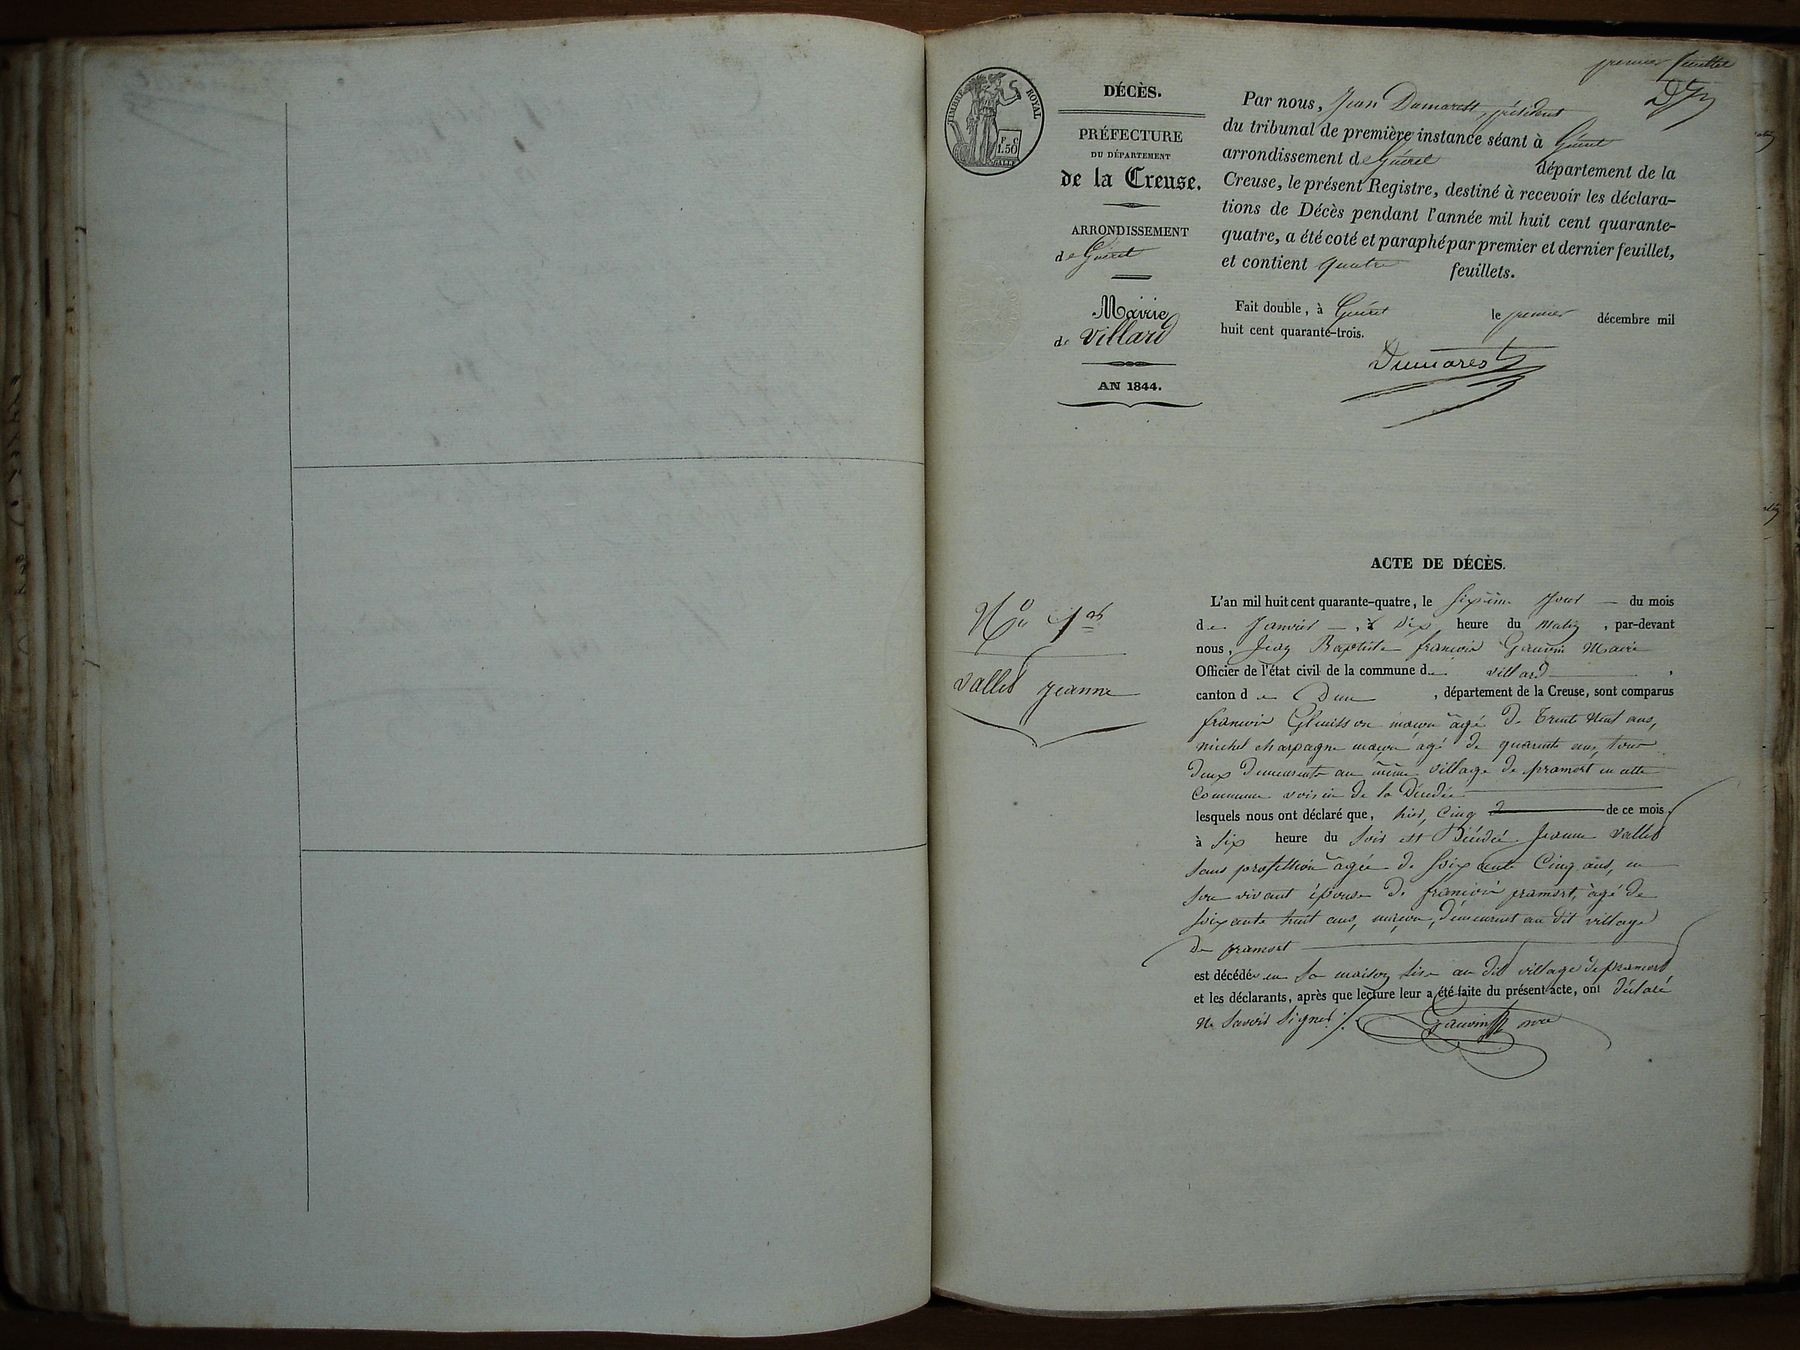 premier feuillet
TIMBRE ROYAL
F C
1.50
DÉCÈS.
PRÉFECTURE
DU DÉPARTEMENT
de la Creuse.
ARRONDISSEMENT
de Guéret
Mairie
de Villard
AN 1844.
Par nous, Jean Dumarest, président
du tribunal de première instance séant à Guéret
arrondissement de Guéret département de la
Creuse, le présent Registre, destiné à recevoir les déclara-
tions de Décès pendant l'année mil huit cent quarante-
quatre, a été coté et paraphé par premier et dernier feuillet,
et contient quatre feuillets.
Fait double, à Guéret le premier décembre mil
huit cent quarante-trois.
Dumarest
ACTE DE DÉCÈS.
No 1er
Vallet Jeanne
L'an mil huit cent quarante-quatre, le sixième jour du mois
de Janvier, à dix heure du Matin, par-devant
nous, Jean Baptiste françois Gauvin Maire
Officier de l'état civil de la commune de villard,
canton de Dun, département de la Creuse, sont comparus
françois maçon âgé de trente Neuf ans,
michel charpagne maçon âgé de quarante ans, tous
deux demeurants au même village de pramort en cette
Commune voisin de la Décédée
lesquels nous ont déclaré que, hier, Cinq de ce mois,
à Six heure du Soir est Décédée Jeanne Vallet
sans profession âgée de Soixante Cinq ans, en
son vivant épouse de françois pramort, âgé de
soixante huit ans, maçon, demeurant au dit village
de pramort
est décédée en sa maison sise au dit village de pramort
et les déclarants, après que lecture leur a été faite du présent acte, ont déclaré
Ne Savoir Signer
Gauvin